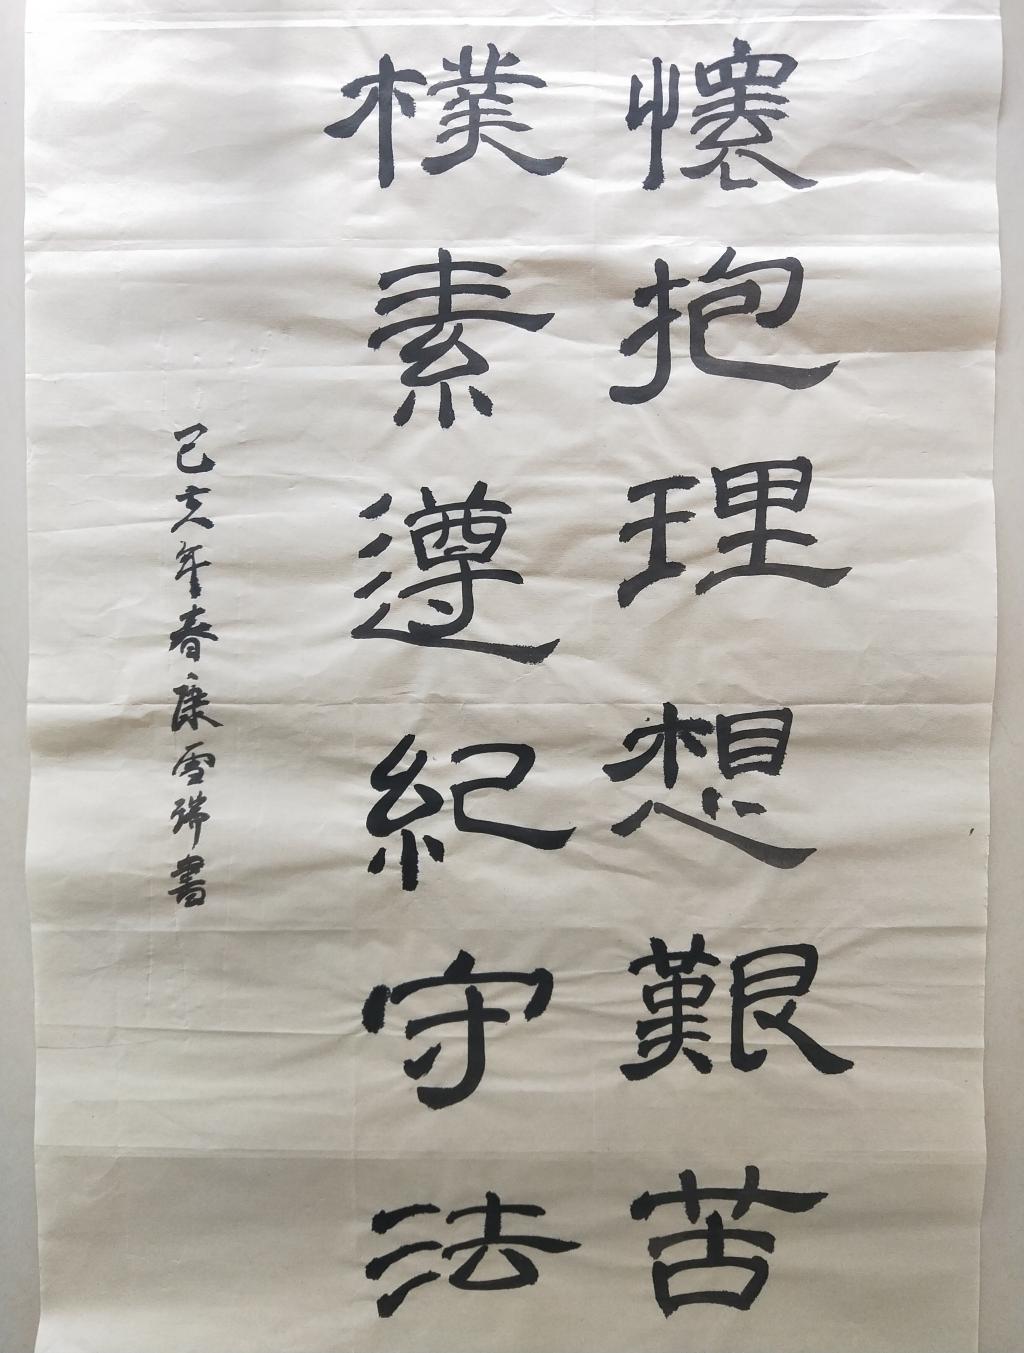 懷抱理想艱苦
樸素遵紀守法
己亥年春康雪瑞書